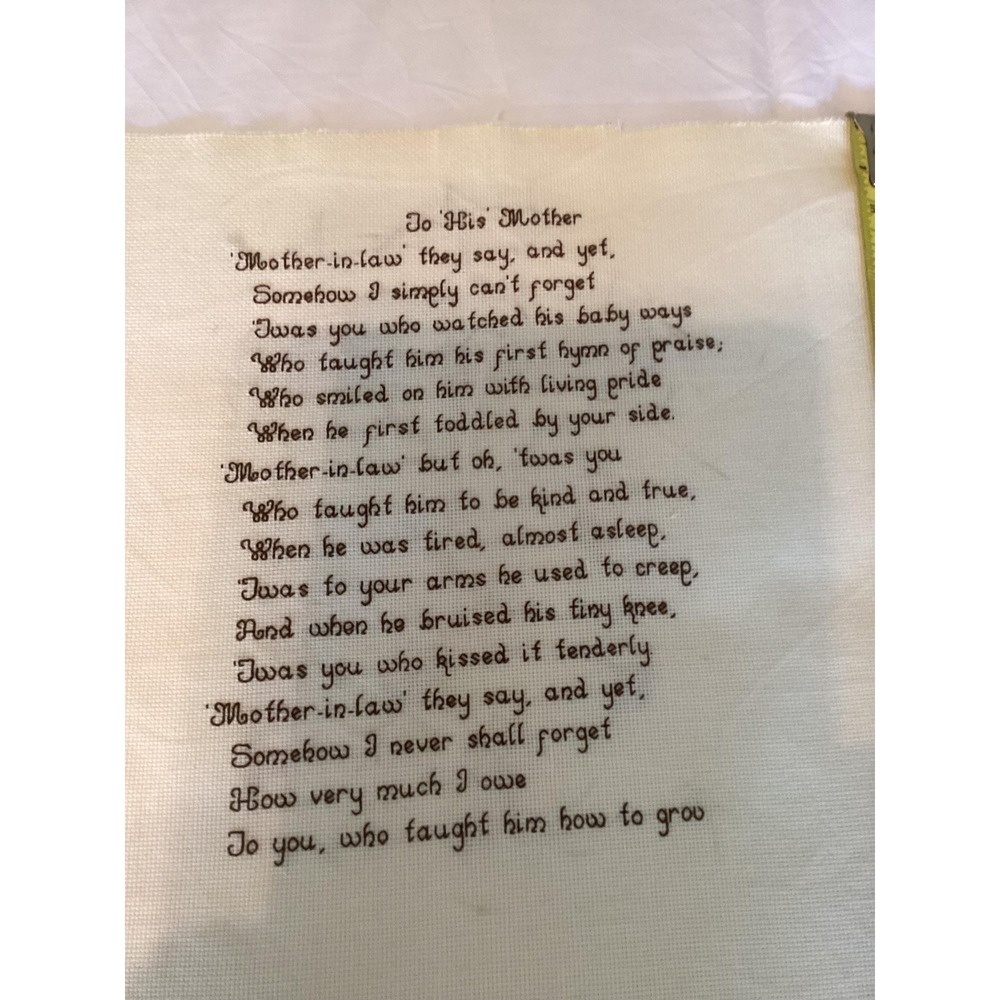 To 'His' Mother
'Mother-in-law' they say, and yet,
Somehow I simply can't forget
'Twas you who watched his baby ways
Who taught him his first hymn of praise;
Who smiled on him with living pride
When he first toddled by your side.
'Mother-in-law' but oh, 'twas you
Who taught him to be kind and true,
When he was tired, almost asleep,
'Twas to your arms he used to creep,
And when he bruised his tiny knee,
'Twas you who kissed it tenderly
'Mother-in-law' they say, and yet,
Somehow I never shall forget
How very much I owe
To you, who taught him how to grow